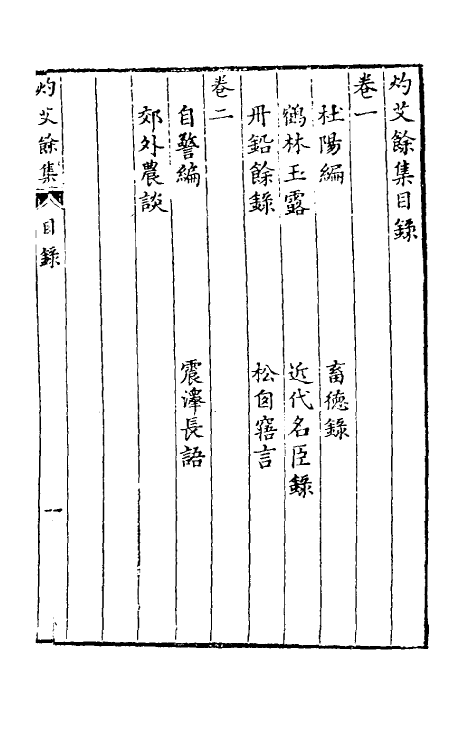 灼艾餘集目錄
卷一
杜陽編 畜德錄
鶴林玉露 近代名臣錄
丹鉛餘錄 松囱寤言
卷二
自警編 震澤長語
郊外農談
灼艾餘集 目錄 一